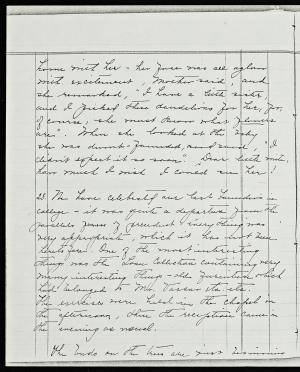 home with her - her face was all aglow
with excitement, Mother said, and
she remarked, "I have a little sister
and I picked these dandelions for her, for,
of course, she must know what flowers
are". When she looked at the baby
she was dumb-founded, and said, "I
didn't expect it so soon". Dear little mite,
how much I wish I could see her!
23. We have celebrated our last Founder's in
college - it was quite a departure from the
of and everything was
very appropriate, which it has not been
One of the most interesting
things was the Loan Collection containing very
many interesting things - old furniture which
had belonged to Mr. Vassar etc. etc.
The exercises were held in the chapel in
the afternoon, then the reception came in
the evening as usual.
The buds on the trees are just beginning